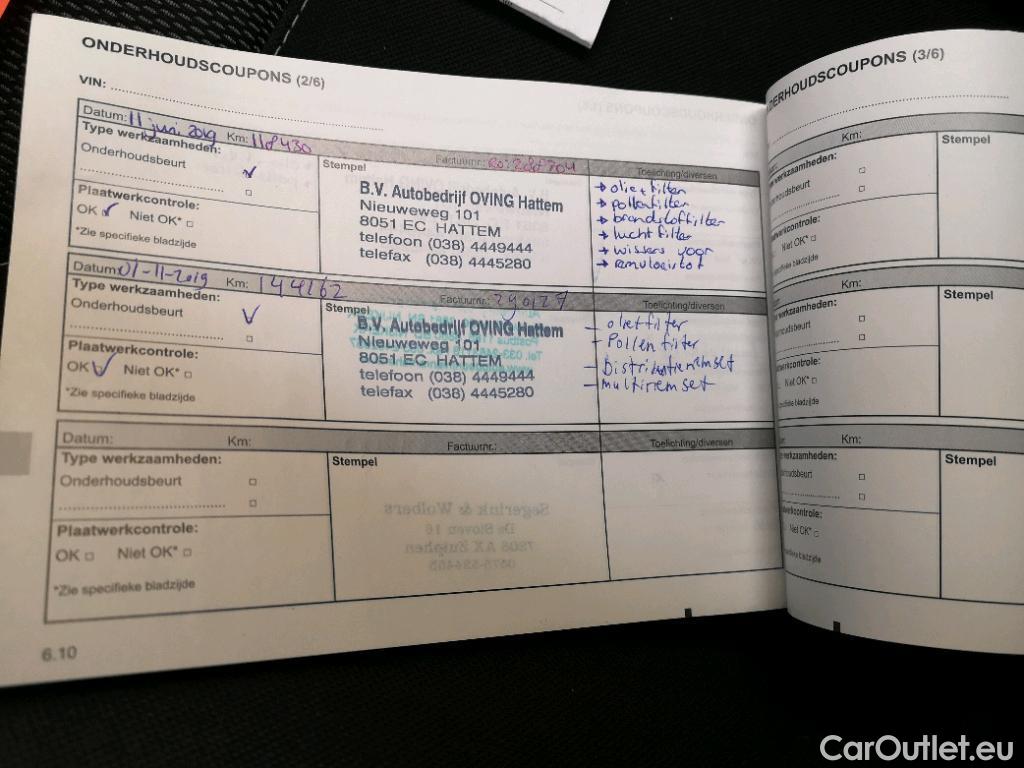 ONDERHOUDSCOUPONS (2/6)
VIN:
Datum: 11 juni 2019 Km: 118430 Factuurnr.: 288704 Toelichting/diversen
Type werkzaamheden:
Onderhoudsbeurt
Plaatwerkcontrole:
OK Niet OK*
*Zie specifieke bladzijde
Stempel
B.V. Autobedrijf OVING Hattem
Nieuweweg 101
8051 EC HATTEM
telefoon (038) 4449444
telefax (038) 4445280
→ olie+filter
→ pollenfilter
→ brandstoffilter
→ luchtfilter
→ wissers voor
→ remvloeistof
Datum: 01-11-2019 Km: 144262 Factuurnr.: 290127 Toelichting/diversen
Type werkzaamheden:
Onderhoudsbeurt
Plaatwerkcontrole:
OK Niet OK*
*Zie specifieke bladzijde
Stempel
B.V. Autobedrijf OVING Hattem
Nieuweweg 101
8051 EC HATTEM
telefoon (038) 4449444
telefax (038) 4445280
- olie+filter
- Pollenfilter
- Distributieriemset
- Multiriemset
Datum: Km: Factuurnr.: Toelichting/diversen
Type werkzaamheden:
Onderhoudsbeurt
Plaatwerkcontrole:
OK Niet OK*
*Zie specifieke bladzijde
Stempel
6.10
DERHOUDSCOUPONS (3/6)
Km:
Stempel
werkzaamheden:
houdsbeurt
werkcontrole:
Niet OK*
specifieke bladzijde
Km:
Stempel
werkzaamheden:
houdsbeurt
werkcontrole:
Niet OK*
specifieke bladzijde
Km:
Stempel
werkzaamheden:
houdsbeurt
werkcontrole:
Niet OK*
specifieke bladzijde
CarOutlet.eu